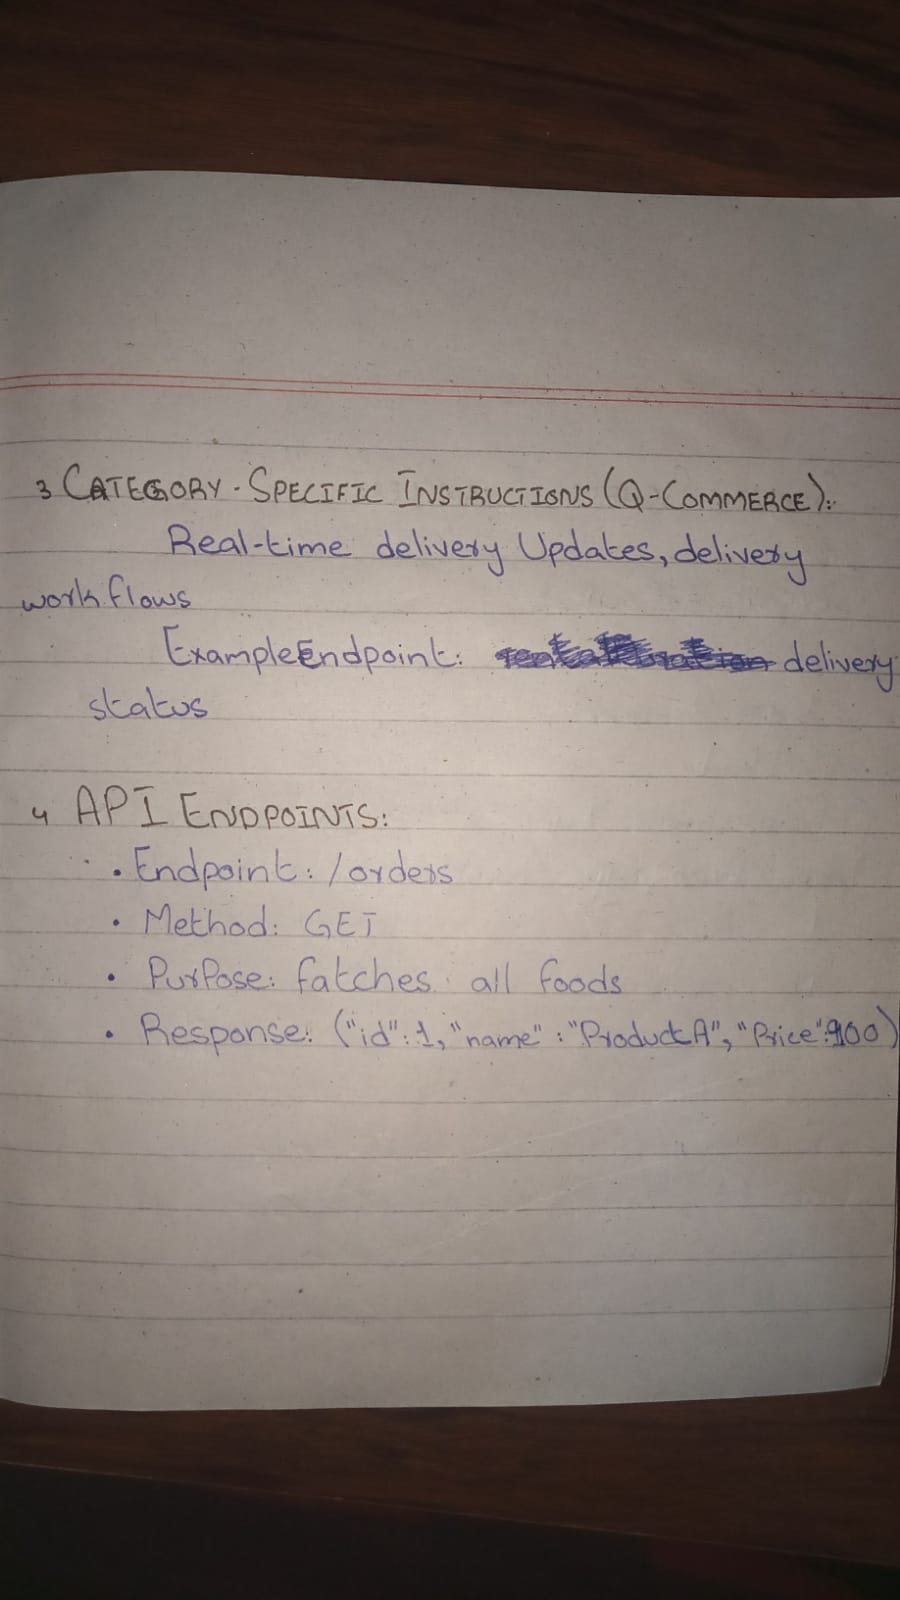 3 CATEGORY-SPECIFIC INSTRUCTIONS (Q-COMMERCE):
Real-time delivery Updates, delivery
work flows
Example Endpoint: delivery
status
4 API ENDPOINTS:
• Endpoint: /orders
• Method: GET
• PurPose: fatches all foods
• Response: ("id":1, "name" : "Product A", "Price":900)